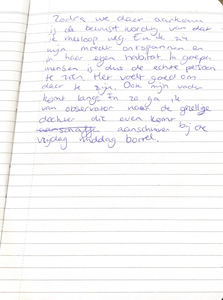 Zodra we daar aankomen
is de bewustwording van dat
ik meeloop weg. En ik zie
mijn moeder ontspannen en
in haar eigen habitat. In groepen
mensen is dus de echte persoon
te zien. Het voelt goed om
daar te zijn. Ook mijn vader
komt langs. En zo ga ik
van observator naar de gezellige
dochter die even komt
aanschuiven bij de
vrijdag middag borrel.